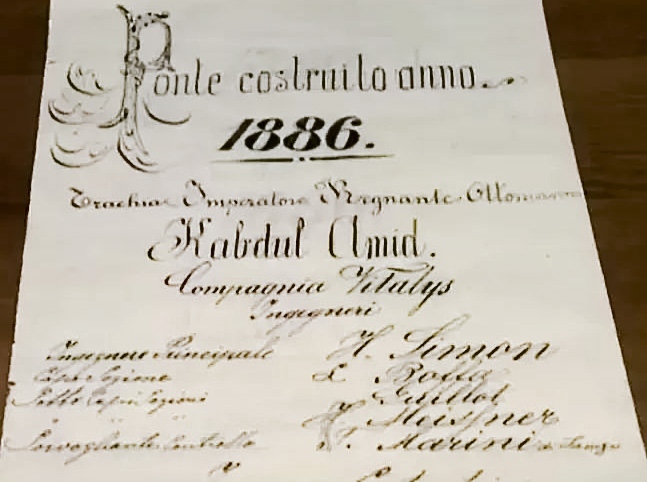 Ponte costruito anno
1886.
Trachia Imperatore Regnante Ottomano
Kabdul Amid.
Compagnia Vitalys
Ingegneri
Ingegnere Principale H. Simon
Capo Sezione L Botta
Sotto Capi Sezioni Guillot
" " H. Meissner
Sorvegliante Controllo Marini